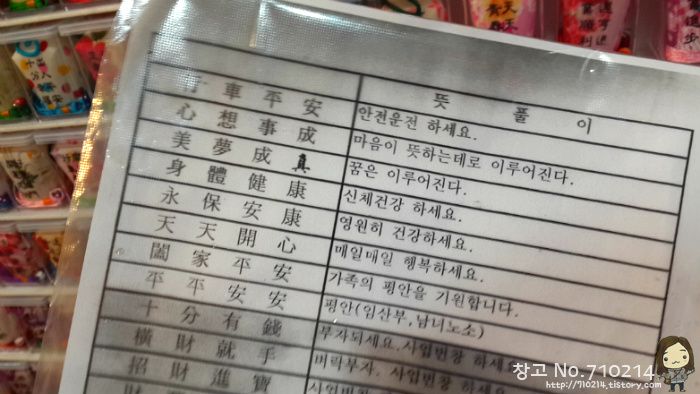 뜻 풀 이
行車平安 안전운전 하세요.
心想事成 마음이 뜻하는데로 이루어진다.
美夢成真 꿈은 이루어진다.
身體健康 신체건강 하세요.
永保安康 영원히 건강하세요.
天天開心 매일매일 행복하세요.
闔家平安 가족의 평안을 기원합니다.
平平安安 평안(임산부,남녀노소)
十分有錢 부자되세요.사업번창 하세요
橫財就手 벼락부자. 사업번창 하세요
招財進寶 사업번창
창고 No.710214
http://710214.tistory.com